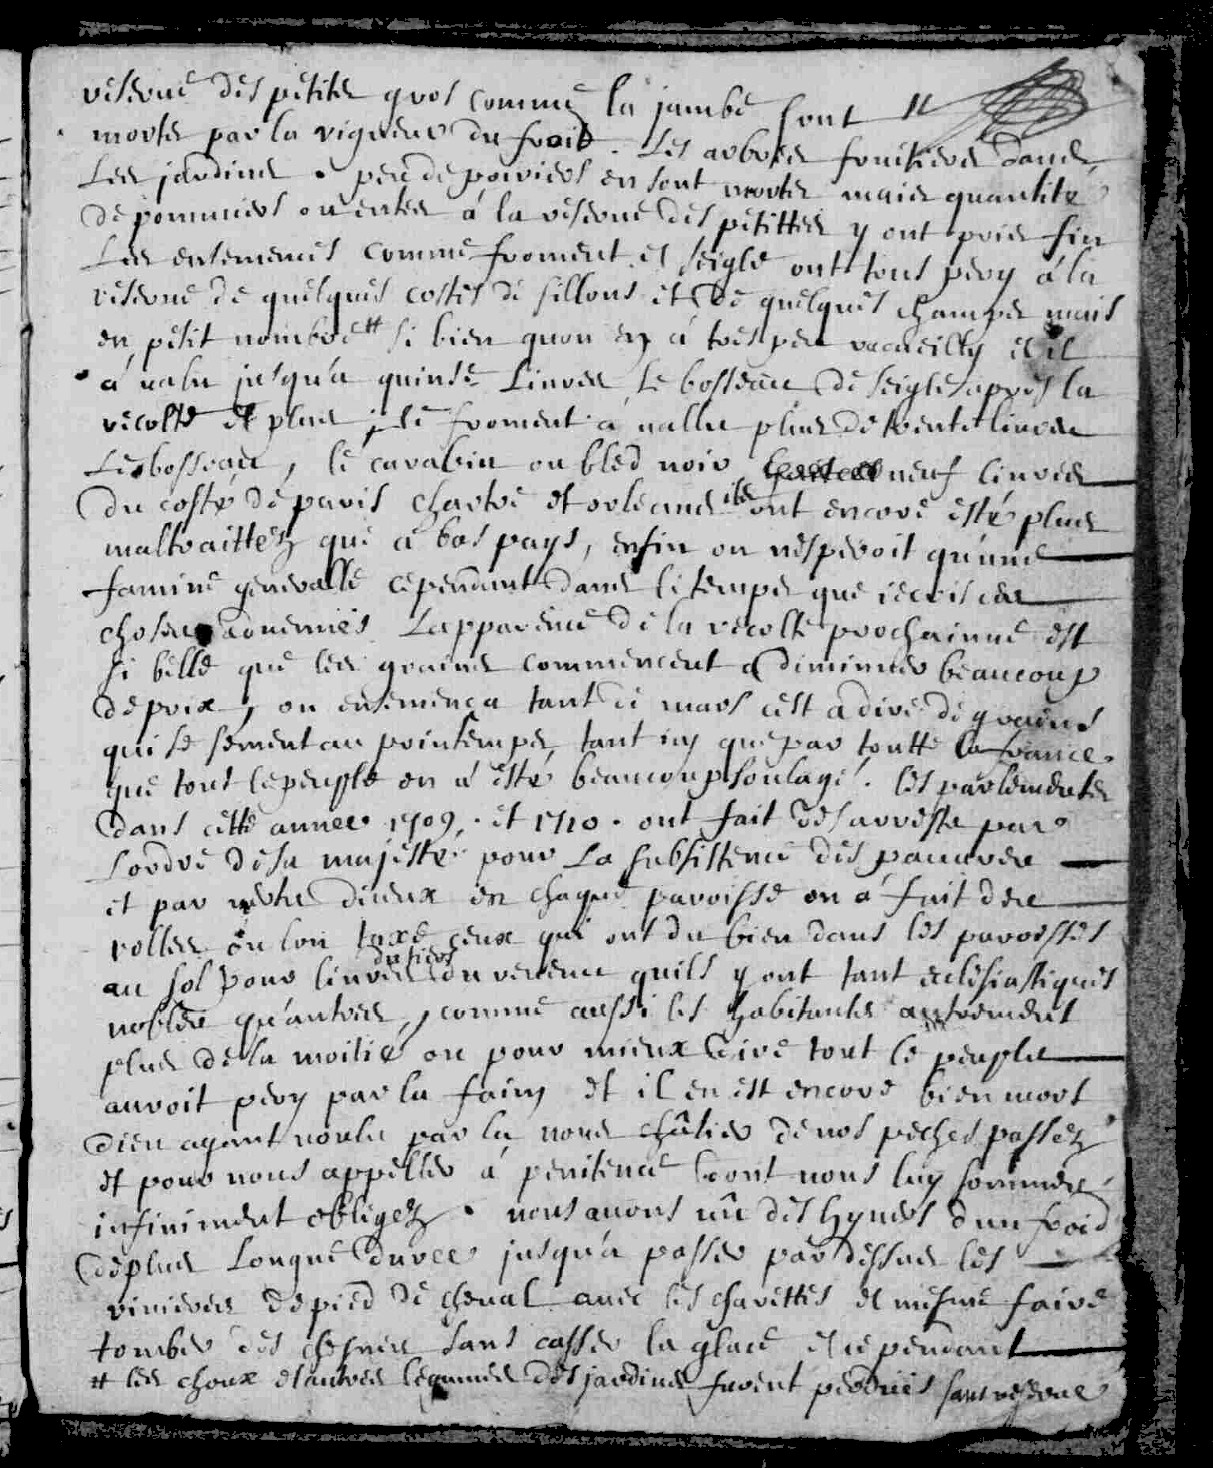 reserve des petites gros comme la jambe sont #
mortes par la rigueur du froid. Les arbres fruitiers dans
Les jardins. peu de poiriers en sont morts mais quantité
de pommiers ou entes à la reserve des petittes y ont pris fin
Les ensemencés comme froment et seigle ont tous pery à la
reserve de quelques costés de sillons et de quelques champs mais
en petit nombre # si bien quon en à tres peu recueilly et il
à valu jusqu'a quinse Livres Le bosseau de seigle apres la
recolte et plus, le froment à vallu plus de trente livres
Le bosseau, le carabin ou bled noir neuf livres
du costé de paris chartre et orleans ils ont encore esté plus
maltraittez que ce bas pays, enfin on nesperoit qu'une
famine generalle cependant dans le temps que jecris ces
choses advenues Lapparence de la recolte prochainne est
si belle que les grains commencent a diminuer beaucoup
de prix, on ensemença tant de mars cest a dire de grains
qui se sement au printemps, tant icy que par toutte la france
que tout le peuple en à esté beaucoup soulagé. les parlements
dans cette annee 1709. et 1710. ont fait des arrests par
Lordre de sa majesté pour La subsistence des pauvres
et par iceux en chaque paroisse on à fait des
rolles ou lon taxe ceux qui ont du bien dans les paroisses
au sol pour livre du tiers du revenu quils y ont tant eclesiastiques
nobles qu'autres, comme aussi les habitants autrement
plus de la moitié ou pour mieux dire tout le peuple
auroit pery par la faim et il en est encore bien mort
dieu ayant voulu par la nous châtier de nos peches passez
et pour nous appeller à penitence dont nous luy sommes
infiniment obligez. nous avons vû des hyvers dun froid
de plus Longue duree jusqu'a passer par dessus les
rivieres de pied de cheval avec les charettes et mesme faire
tomber des chesnes sans casser la glace et cependant
# les choux et autres legumes des jardins furent perdues sans reserve